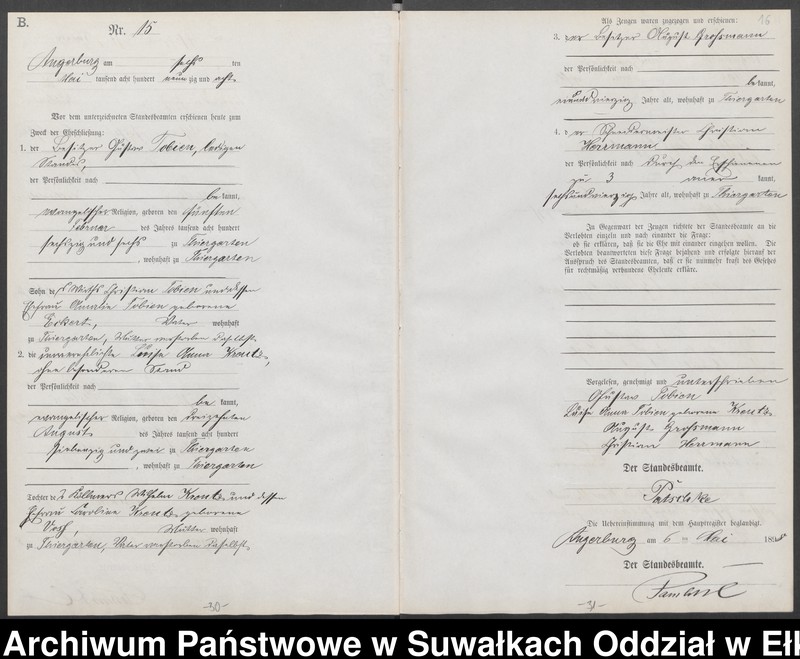 B.
Nr. 15
Angerburg am sechs ten
Mai tausend acht hundert neun zig und acht
Vor dem unterzeichneten Standesbeamten erschienen heute zum
Zweck der Eheschließung:
1. der Besitzer Gustav Tobien, ledigen
Standes,
der Persönlichkeit nach
be kannt,
evangelischer Religion, geboren den fünften
Februar des Jahres tausend acht hundert
sechszig und sechs zu Thiergarten
, wohnhaft zu Thiergarten
Sohn des Wirths Christian Tobien und dessen
Ehefrau Amalie Tobien geborene
Eckert, Vater wohnhaft
zu Thiergarten, Mutter verstorben daselbst.
2. die unverehelichte Luise Anna Kronk,
ohne besonderen Stand
der Persönlichkeit nach
be kannt,
evangelischer Religion, geboren den dreizehnten
August des Jahres tausend acht hundert
siebenzig und zwei zu Thiergarten
, wohnhaft zu Thiergarten
Tochter des Wilhelm und dessen
Ehefrau Caroline geborene
Mutter wohnhaft
zu Thiergarten, Vater verstorben daselbst.
-30-
16
Als Zeugen waren zugezogen und erschienen:
3. der Besitzer August Großmann
der Persönlichkeit nach
be kannt,
Jahre alt, wohnhaft zu Thiergarten
4. der Schneidermeister Christian
Herrmann
der Persönlichkeit nach durch den
zu 3 kannt,
sechsundvierzig Jahre alt, wohnhaft zu Thiergarten
In Gegenwart der Zeugen richtete der Standesbeamte an die
Verlobten einzeln und nach einander die Frage:
ob sie erklären, daß sie die Ehe mit einander eingehen wollen. Die
Verlobten beantworteten diese Frage bejahend und erfolgte hierauf der
Ausspruch des Standesbeamten, daß er sie nunmehr kraft des Gesetzes
für rechtmäßig verbundene Eheleute erkläre.
Vorgelesen, genehmigt und unterschrieben
Gustav Tobien
Luise Anna Tobien geborene
August Großmann
Christian Herrmann
Der Standesbeamte.
Die Uebereinstimmung mit dem Hauptregister beglaubigt.
Angerburg am 6 ten Mai 1898
Der Standesbeamte.
-31-
Archiwum Państwowe w Suwałkach Oddział w Ełk